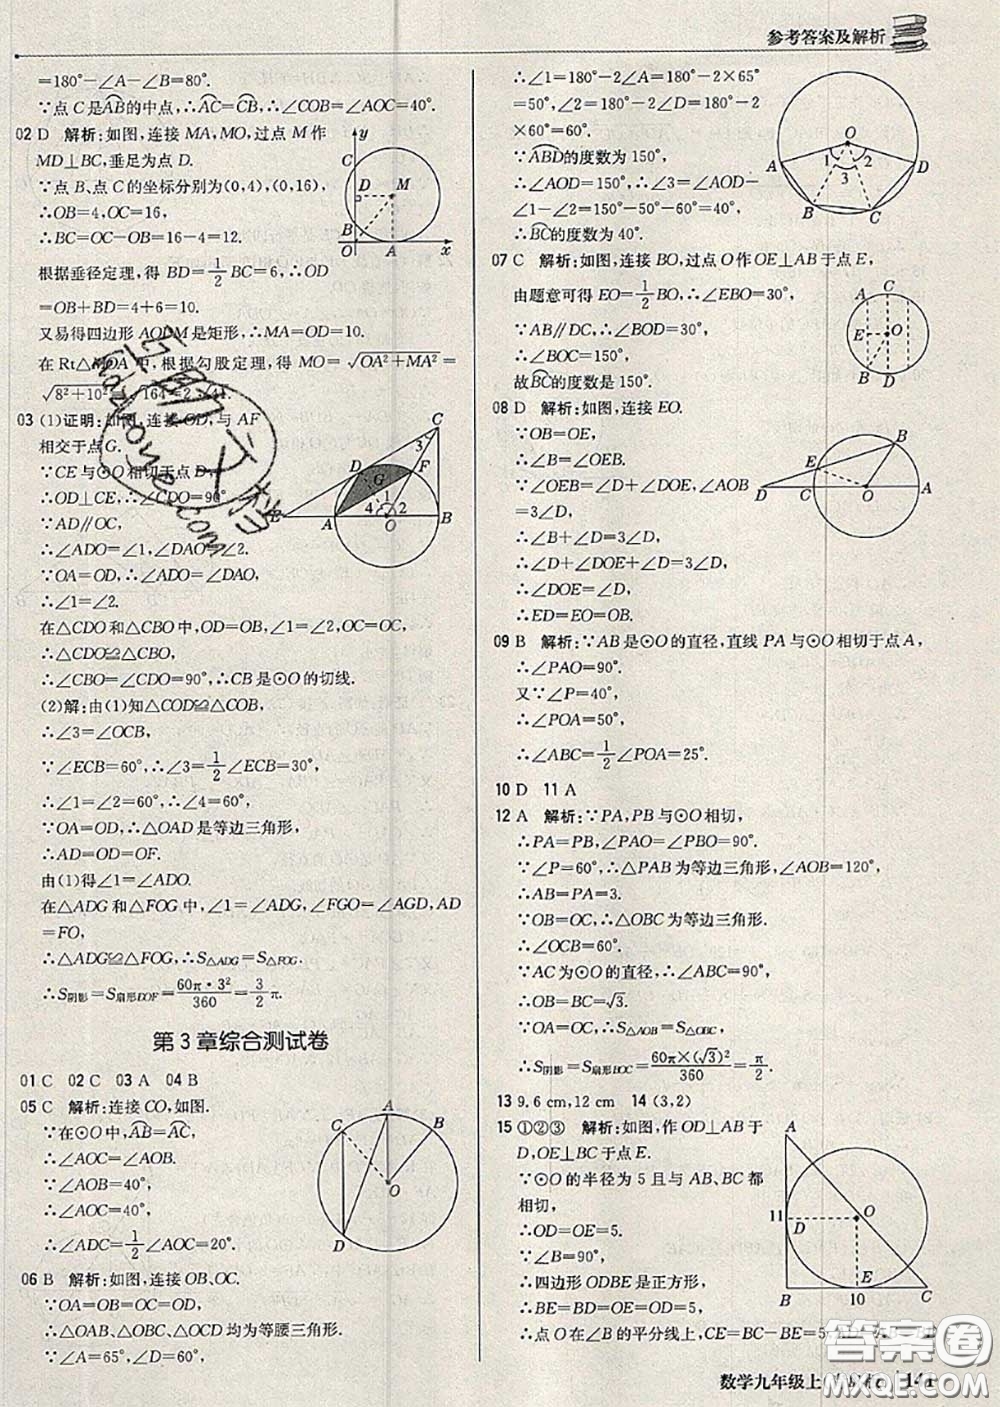 参考答案及解析
=180°-∠A-∠B=80°.
∵点C是AB的中点,∴AC=CB,∴∠COB=∠AOC=40°.
02 D 解析:如图,连接MA,MO,过点M作
MD⊥BC,垂足为点D.
∵点B、点C的坐标分别为(0,4),(0,16),
∴OB=4,OC=16,
∴BC=OC-OB=16-4=12.
根据垂径定理,得BD=1/2BC=6,∴OD
=OB+BD=4+6=10.
又易得四边形AODM是矩形,∴MA=OD=10.
在Rt△MOA中,根据勾股定理,得MO=√(OA²+MA²)=
√(8²+10²)=√164=2√41.
03 (1)证明:如图,连接OD,与AF
相交于点G.
∵CE与⊙O相切于点D,
∴OD⊥CE,∴∠CDO=90°.
∵AD∥OC,
∴∠ADO=∠1,∠DAO=∠2.
∵OA=OD,∴∠ADO=∠DAO,
∴∠1=∠2.
在△CDO和△CBO中,OD=OB,∠1=∠2,OC=OC,
∴△CDO≌△CBO,
∴∠CBO=∠CDO=90°,∴CB是⊙O的切线.
(2)解:由(1)知△COD≌△COB,
∴∠3=∠OCB,
∵∠ECB=60°,∴∠3=1/2∠ECB=30°,
∴∠1=∠2=60°,∴∠4=60°.
∵OA=OD,∴△OAD是等边三角形,
∴AD=OD=OF.
由(1)得∠1=∠ADO.
在△ADG和△FOG中,∠1=∠ADG,∠FGO=∠AGD,AD
=FO,
∴△ADG≌△FOG,∴S△ADG=S△FOG.
∴S阴影=S扇形DOF=60π·3²/360=3/2π.
第3章综合测试卷
01 C 02 C 03 A 04 B
05 C 解析:连接CO,如图.
∵在⊙O中,AB=AC,
∴∠AOC=∠AOB.
∵∠AOB=40°,
∴∠AOC=40°,
∴∠ADC=1/2∠AOC=20°.
06 B 解析:如图,连接OB,OC.
∵OA=OB=OC=OD,
∴△OAB、△OBC、△OCD均为等腰三角形.
∵∠A=65°,∠D=60°,
∴∠1=180°-2∠A=180°-2×65°
=50°,∠2=180°-2∠D=180°-2×
60°=60°.
∵ABD的度数为150°,
∴∠AOD=150°,∴∠3=∠AOD-
∠1-∠2=150°-50°-60°=40°,
∴BC的度数为40°.
07 C 解析:如图,连接BO,过点O作OE⊥AB于点E,
由题意可得EO=1/2BO,∴∠EBO=30°,
∵AB∥DC,∴∠BOD=30°,
∴∠BOC=150°,
故BC的度数是150°.
08 D 解析:如图,连接EO.
∵OB=OE,
∴∠B=∠OEB.
∵∠OEB=∠D+∠DOE,∠AOB
=3∠D,
∴∠B+∠D=3∠D,
∴∠D+∠DOE+∠D=3∠D,
∴∠DOE=∠D,
∴ED=EO=OB.
09 B 解析:∵AB是⊙O的直径,直线PA与⊙O相切于点A,
∴∠PAO=90°.
又∵∠P=40°,
∴∠POA=50°,
∴∠ABC=1/2∠POA=25°.
10 D 11 A
12 A 解析:∵PA,PB与⊙O相切,
∴PA=PB,∠PAO=∠PBO=90°.
∵∠P=60°,∴△PAB为等边三角形,∠AOB=120°,
∴AB=PA=3.
∵OB=OC,∴△OBC为等边三角形.
∴∠OCB=60°.
∵AC为⊙O的直径,∴∠ABC=90°.
∴OB=BC=√3.
∵OA=OC,∴S△AOB=S△OBC,
∴S阴影=S扇形BOC=60π×(√3)²/360=π/2.
13 9.6 cm,12 cm 14 (3,2)
15 ①②③ 解析:如图,作OD⊥AB于
D,OE⊥BC于点E.
∵⊙O的半径为5且与AB、BC都
相切,
∴OD=OE=5.
∵∠B=90°,
∴四边形ODBE是正方形,
∴BE=BD=OE=OD=5,
∴点O在∠B的平分线上,CE=BC-BE=5
数学九年级上
141
答案圈